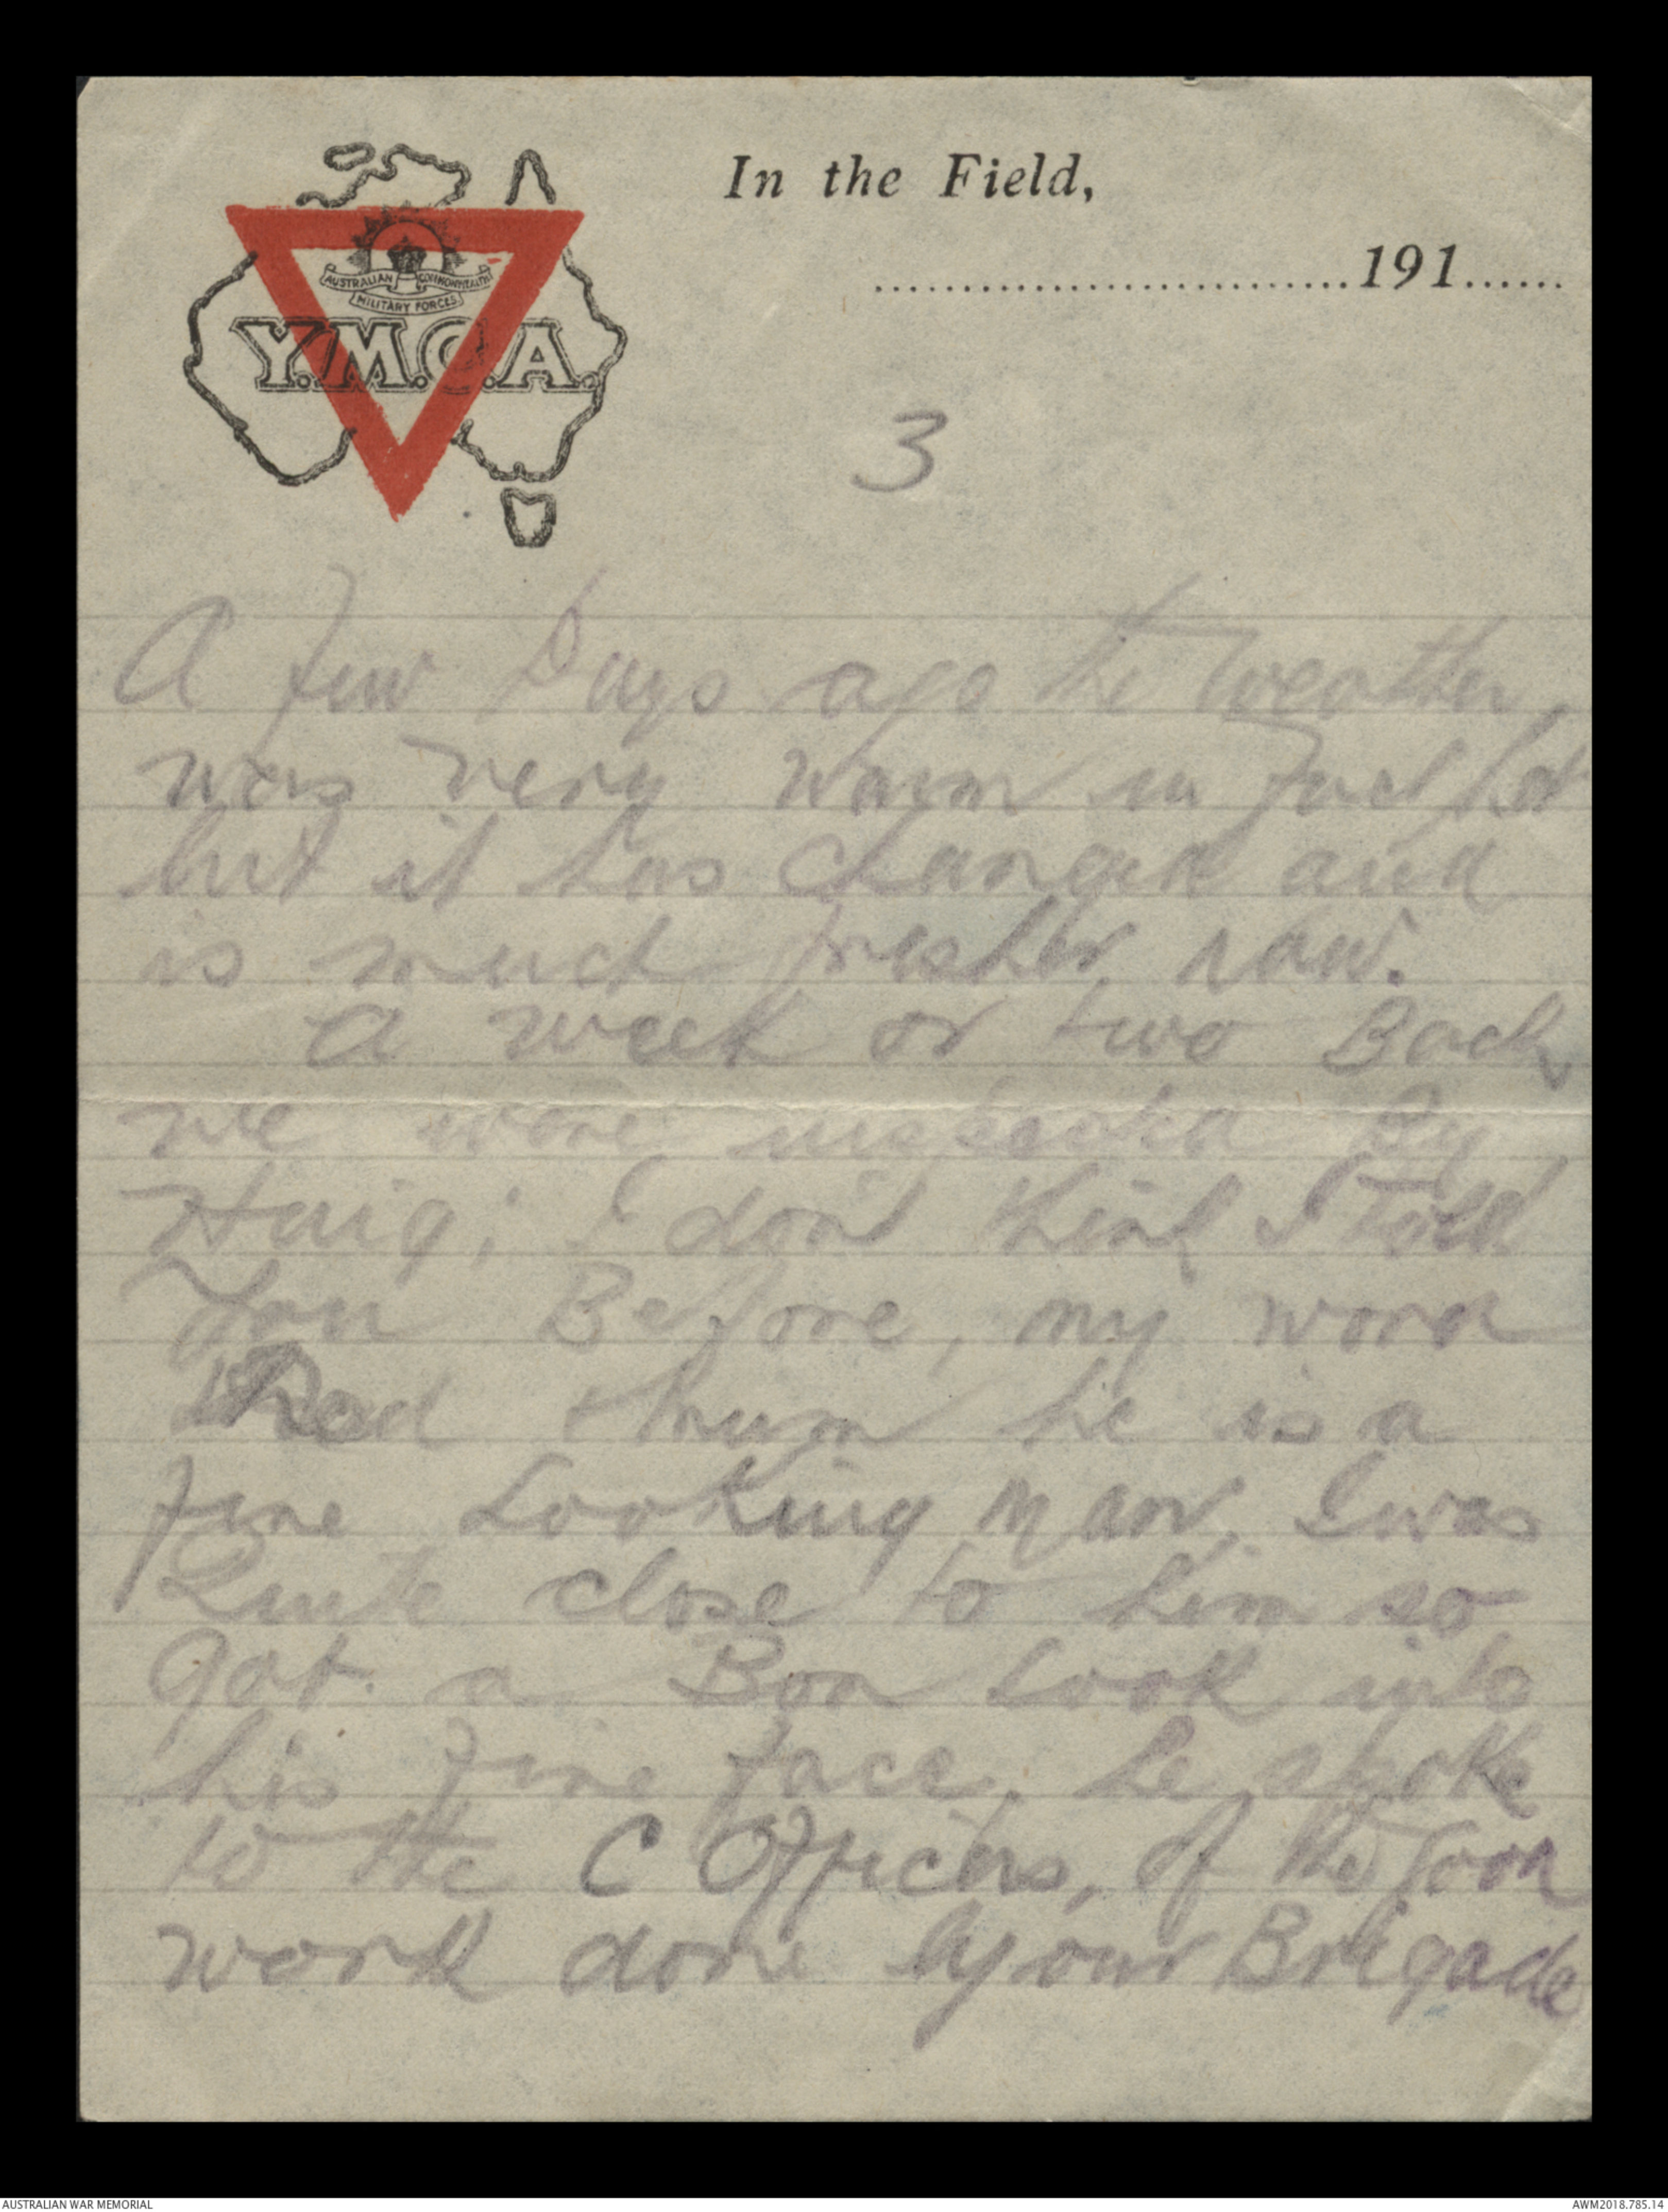 In the Field,
AUSTRALIAN COMMONWEALTH
MILITARY FORCES
Y.M.C.A.
191
3
A few Days ago the weather,
was very warm in fact hot
but it has changed and
is much fresher now.
A week or two Back,
we were inspected By
Haig; I don't think I told
you Before, my word
Dad & Mum he is a
fine Looking Man. I was
Quite close to him so
Got a Bon Look into
his fine face. he spoke
to the C Officers, of the Good
work done by our Brigade
AUSTRALIAN WAR MEMORIAL
AWM2018.785.14